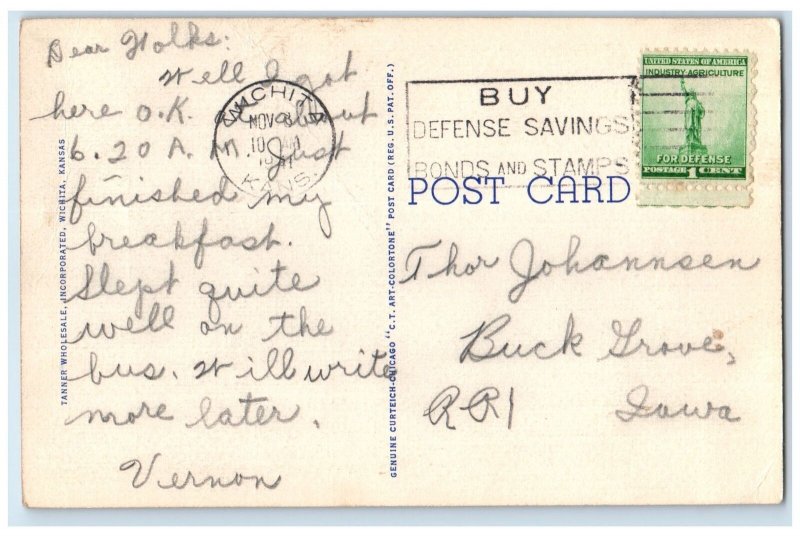 Dear Folks:
Well I got
here O.K. at about
6.20 A.M. Just
finished my
breakfast.
Slept quite
well on the
bus. Will write
more later.
Vernon
TANNER WHOLESALE, INCORPORATED, WICHITA, KANSAS
GENUINE CURTEICH-CHICAGO "C.T. ART-COLORTONE" POST CARD (REG. U.S. PAT. OFF.)
WICHITA
NOV 8
10 AM
1941
KANS.
BUY
DEFENSE SAVINGS
BONDS AND STAMPS
UNITED STATES OF AMERICA
INDUSTRY-AGRICULTURE
FOR DEFENSE
POSTAGE 1 CENT
POST CARD
Thor Johannsen
Buck Grove,
RR1 Iowa